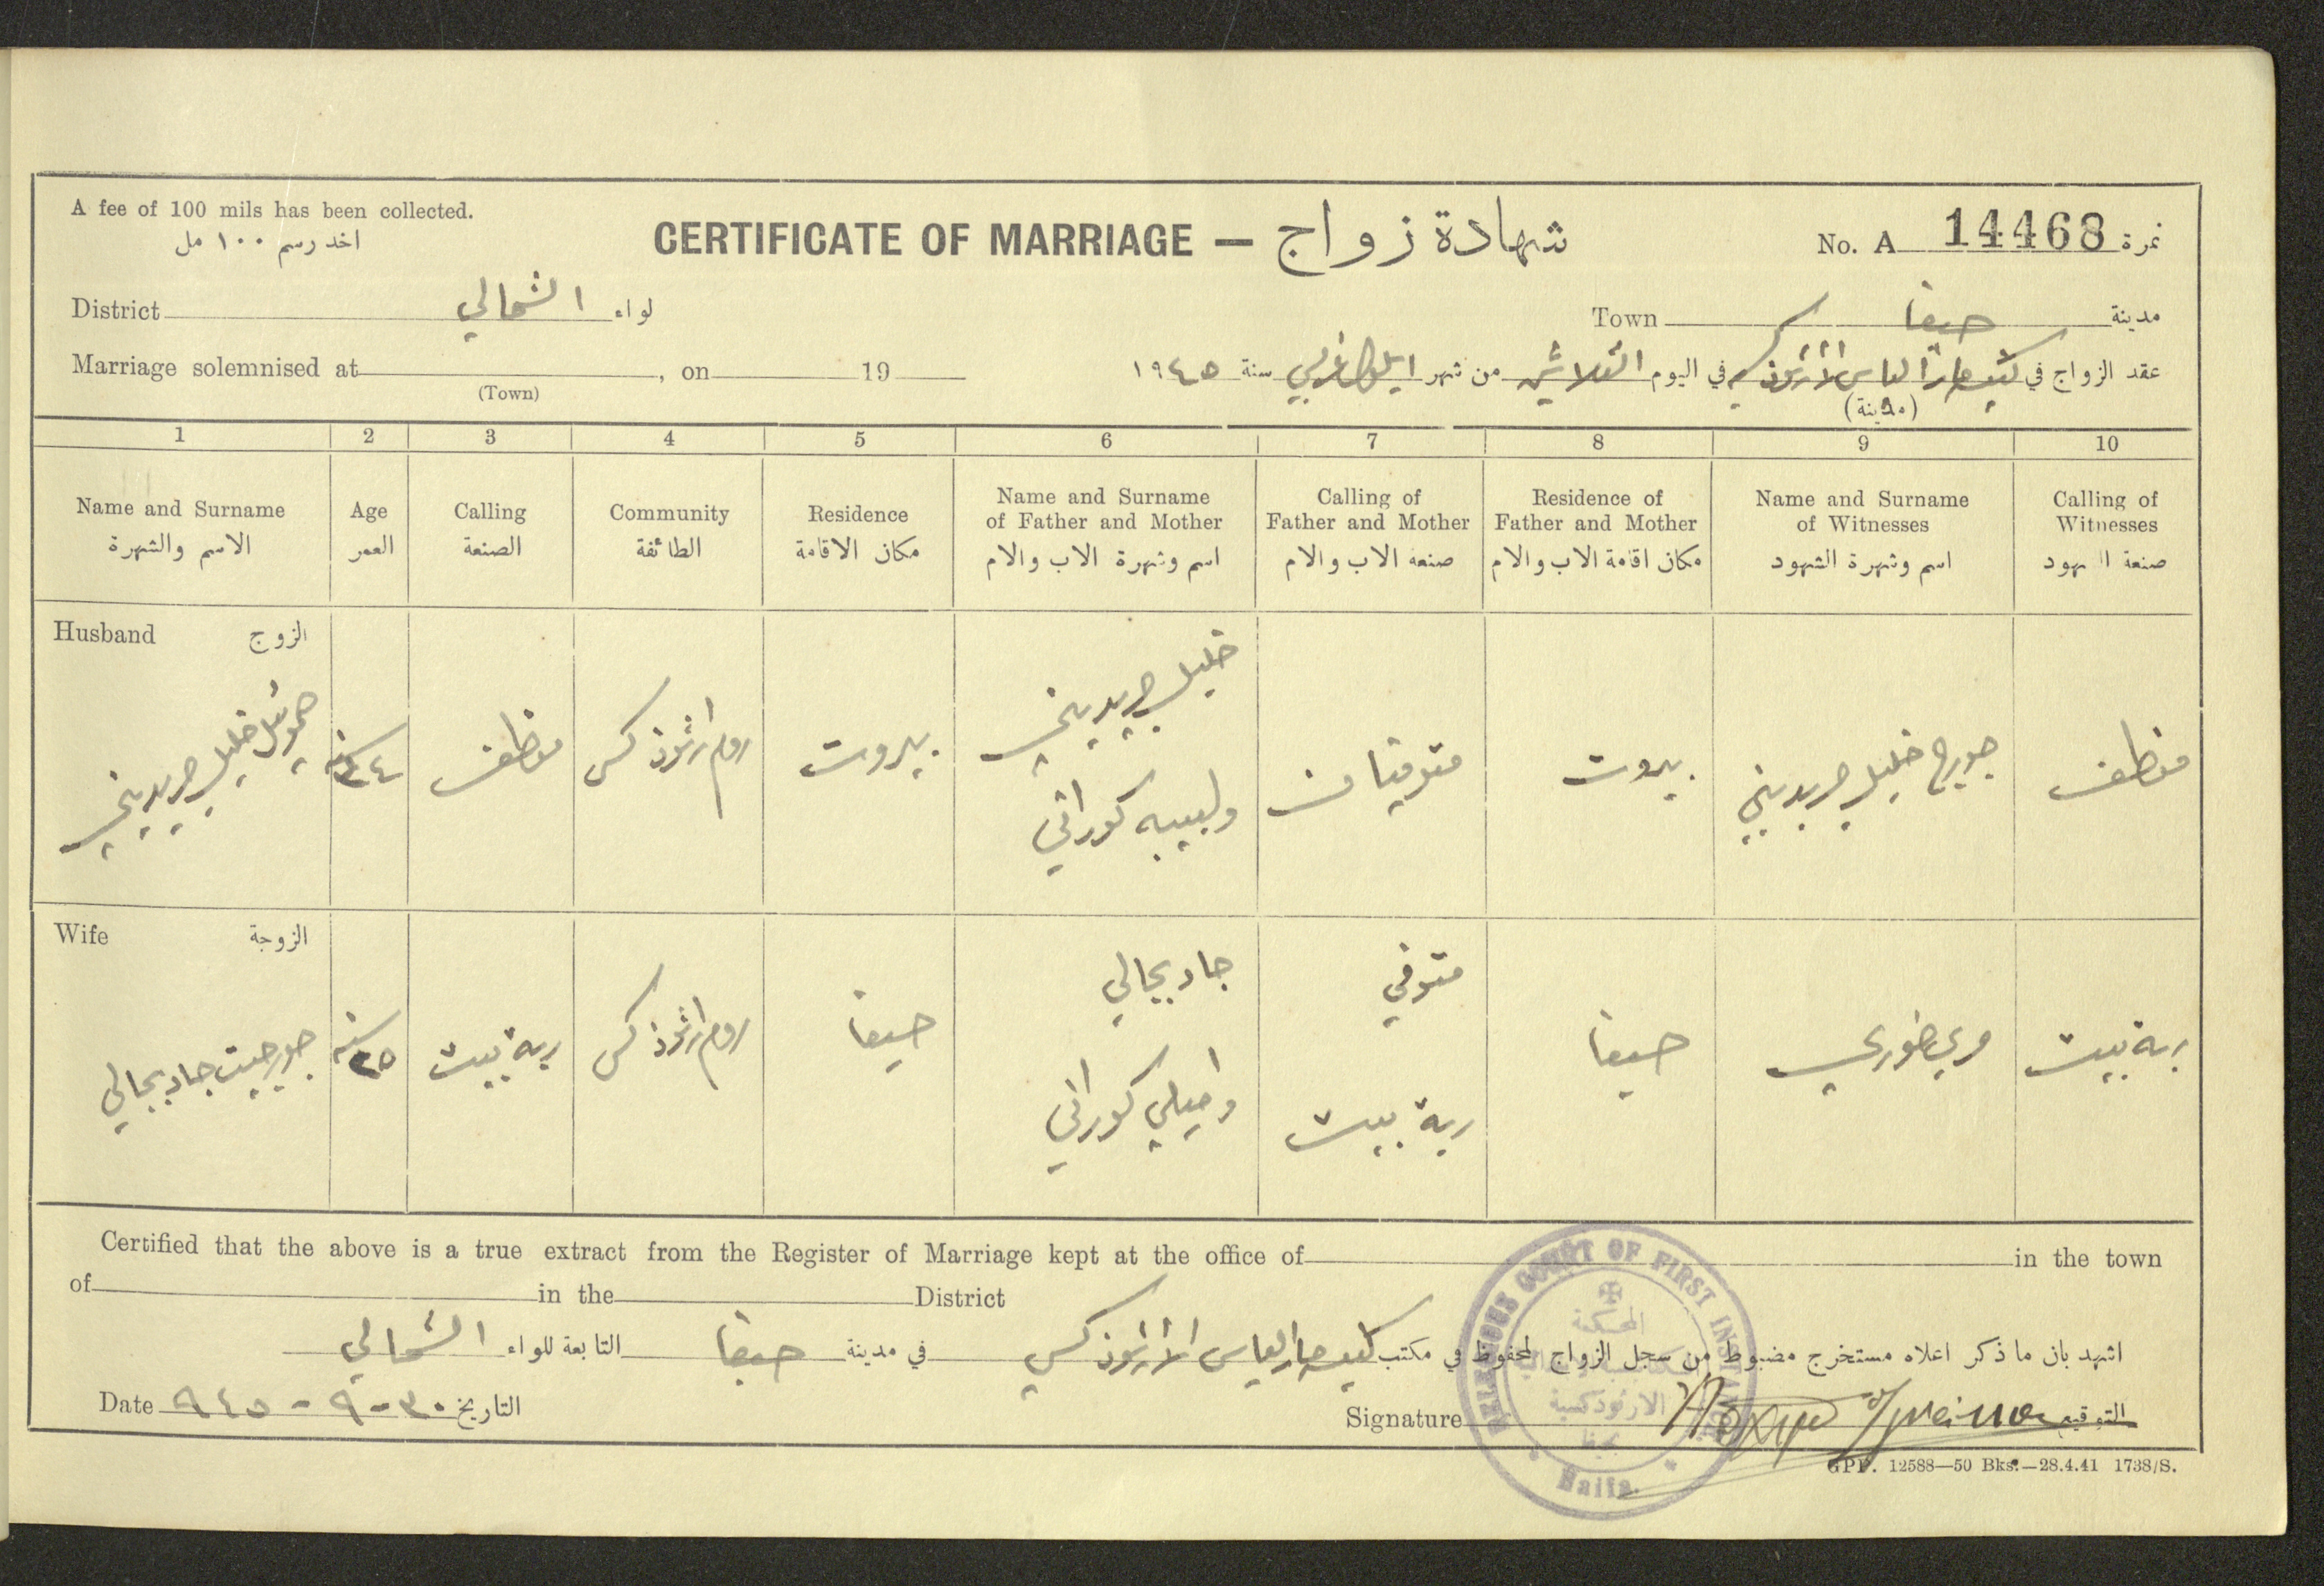 A fee of 100 mils has been collected.
اخد رسم ١٠٠ مل
CERTIFICATE OF MARRIAGE — شهادة زواج
No. A 14468 نمرة
District الشمالي لواء
Town حيفا مدينة
Marriage solemnised at , on 19
(Town)
عقد الزواج في كنيسة مار الياس الأرثوذكسية في اليوم الثلاثين من شهر ايلول غربي سنة ١٩٤٥
(مدينة)
1 2 3 4 5 6 7 8 9 10
Name and Surname
الاسم والشهرة
Age
العمر
Calling
الصنعة
Community
الطائفة
Residence
مكان الاقامة
Name and Surname
of Father and Mother
اسم وشهرة الاب والام
Calling of
Father and Mother
صنعة الاب والام
Residence of
Father and Mother
مكان اقامة الاب والام
Name and Surname
of Witnesses
اسم وشهرة الشهود
Calling of
Witnesses
صنعة الشهود
Husband الزوج
خليل جريديني
٣٤ سنة
موظف
روم ارثوذكس
بيروت
خليل جريديني
ولبيبه كوراني
متوفيان
بيروت
جورج خليل جريديني
موظف
Wife الزوجة
جورجيت جاد بجالي
٢٥ سنة
ربة بيت
روم ارثوذكس
حيفا
جاد بجالي
واميلي كوراني
متوفي
ربة بيت
حيفا
خوري
ربة بيت
Certified that the above is a true extract from the Register of Marriage kept at the office of in the town
of in the District
اشهد بان ما ذكر اعلاه مستخرج مضبوط من سجل الزواج المحفوظ في مكتب كنيسة مار الياس الأرثوذكسي في مدينة حيفا التابعة للواء الشمالي
Date ٣٠-٩-٩٤٥ التاريخ
Signature التوقيع
RELIGIOUS COURT OF FIRST INSTANCE
المحكمة
الارثوذكسية
بحيفا
Haifa.
GPP. 12588—50 Bks.—28.4.41 1738/S.